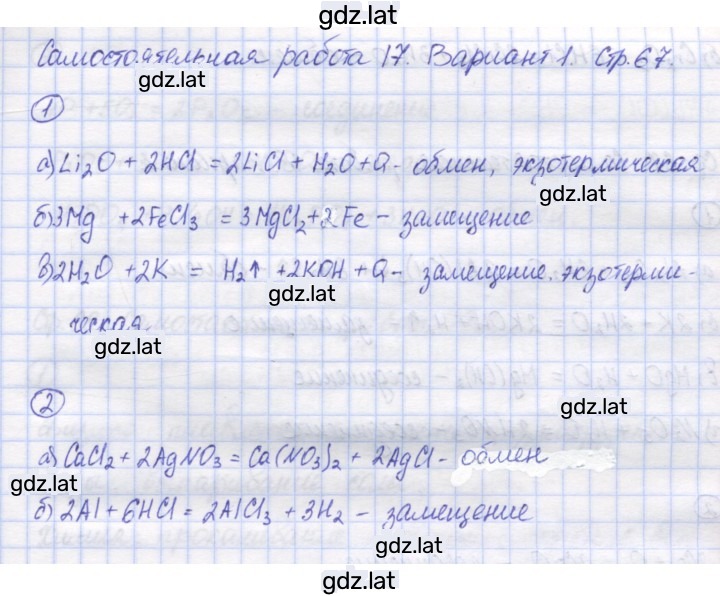 gdz.lat
Самостоятельная работа 17. Вариант 1. Стр. 67.
gdz.lat
1
а) Li₂O + 2HCl = 2LiCl + H₂O + Q - обмен, экзотермическая
gdz.lat
б) 3Mg + 2FeCl₃ = 3MgCl₂ + 2Fe - замещение
в) 2H₂O + 2K = H₂↑ + 2KOH + Q - замещение. экзотерми-
gdz.lat
ческая.
gdz.lat
2
gdz.lat
а) CaCl₂ + 2AgNO₃ = Ca(NO₃)₂ + 2AgCl - обмен
gdz.lat
б) 2Al + 6HCl = 2AlCl₃ + 3H₂ - замещение
gdz.lat
gdz.lat